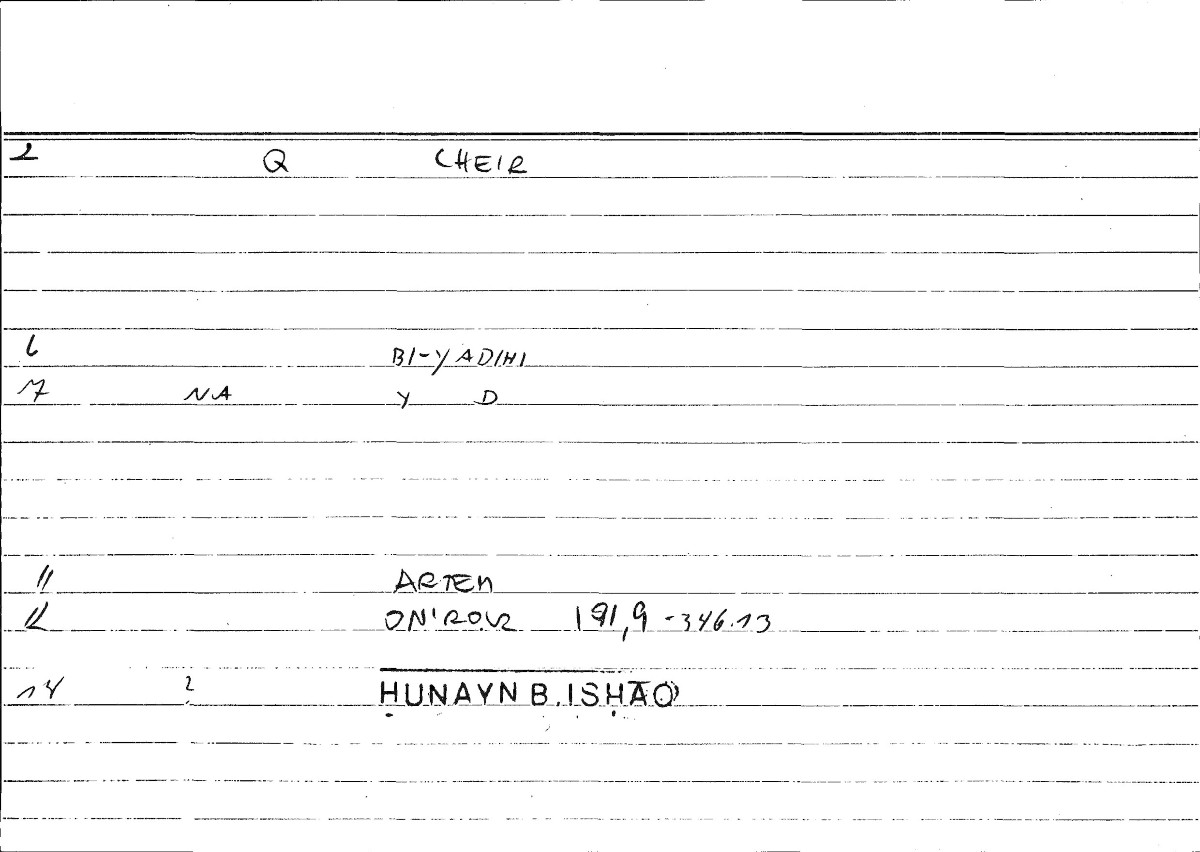 2 Q CHEIR
6 BI-YADIHI
7 NA Y D
11 ARTEM
12 ON'ROK 191,9-346.13
14 2 ḤUNAYN B. ISḤĀQ